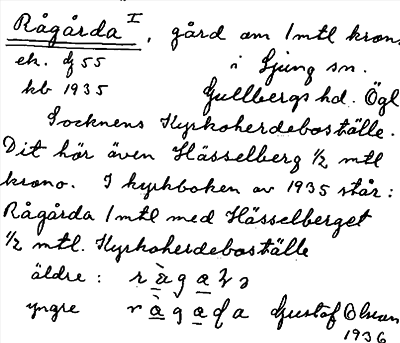 Rågårda I, gård om 1 mtl krono
ek. bl 55 i Ljung sn.
kb 1935 Gullbergs hd. Ögl
Socknens Kyrkoherdeboställe.
Dit hör även Hässelberg 1/2 mtl
krono. I kyrkboken av 1935 står:
Rågårda 1 mtl med Hässelberget
1/2 mtl. Kyrkoherdeboställe
äldre:
yngre Gustaf Olson
1936